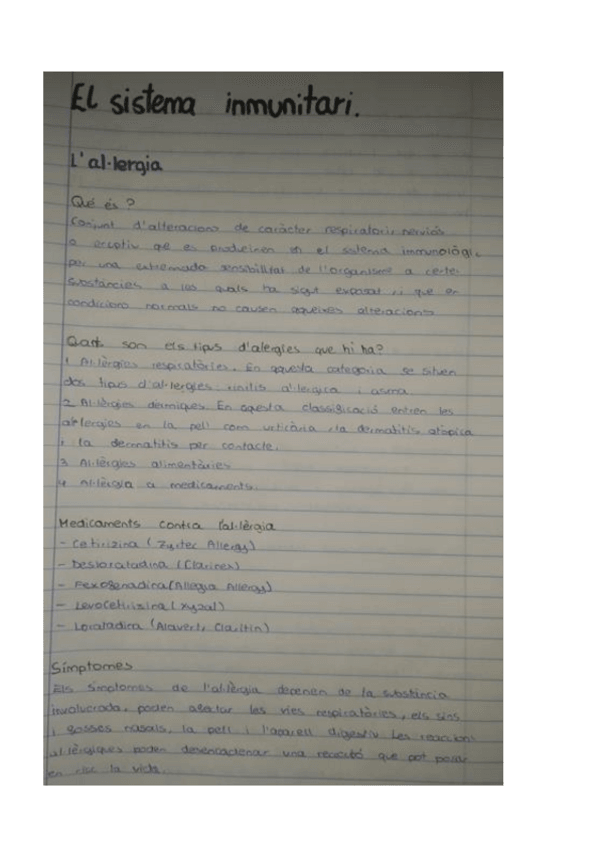 El sistema inmunitari.
L'al·lergia
Qué és?
Conjunt d'alteracions de caràcter respiratori, nerviós
o eruptiu que es produeixen en el sistema immunològic
per una extremada sensibilitat de l'organisme a certes
substàncies a les quals ha sigut exposat, i que en
condicions normals no causen aqueixes alteracions
Quants son els tipus d'alergies que hi ha?
1 Al·lèrgies respiratòries. En aquesta categoria se situen
dos tipus d'al·lergies: rinitis al·lèrgica i asma.
2 Al·lèrgies dèrmiques. En aquesta classificació entren les
al·lergies en la pell com urticària, la dermatitis atòpica
i la dermatitis per contacte.
3 Al·lèrgies alimentàries
4 Al·lèrgia a medicaments.
Medicaments contra l'al·lèrgia
- Cetirizina (Zyrtec Allergy)
- Desloratadina (Clarinex)
- Fexofenadina (Allegra Allergy)
- Levocetirizina (Xyzal)
- Loratadina (Alavert, Claritin)
Símptomes
Els simptomes de l'al·lèrgia depenen de la substància
involucrada, poden afectar les vies respiratòries, els sins
i fosses nasals, la pell i l'aparell digestiu. Les reaccions
al·lèrgiques poden desencadenar una reacció que pot posar
en risc la vida.